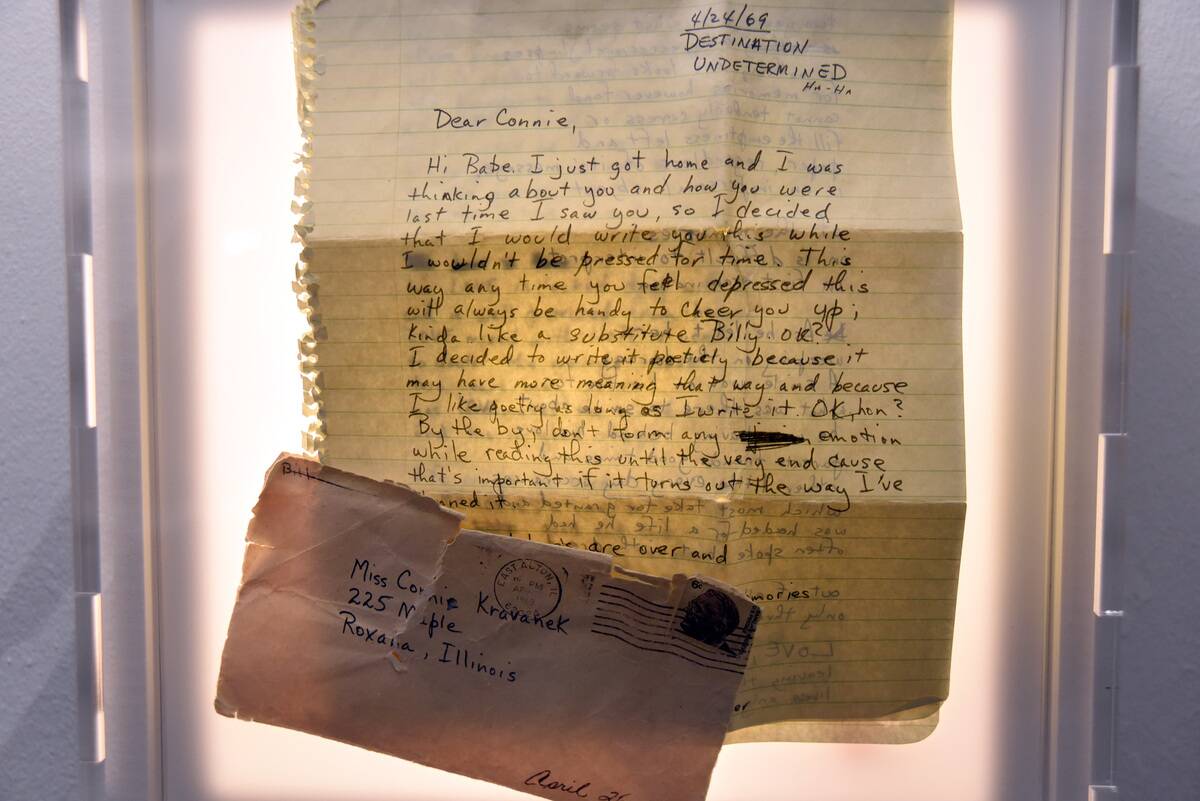 4/24/69
DESTINATION
UNDETERMINED
HA-HA
Dear Connie,
Hi Babe. I just got home and I was
thinking about you and how you were
last time I saw you, so I decided
that I would write you this while
I wouldn't be pressed for time. This
way any time you feel depressed this
will always be handy to cheer you up;
kinda like a substitute Billy. OK?
I decided to write it poeticly because it
may have more meaning that way and because
I like poetry as long as I write it. OK, hon?
By the by, don't form any emotion
while reading this until the very end cause
that's important if it turns out the way I've
it
are over and
Miss
Kravanek
225
Roxana, Illinois
EAST ALTON, IL
PM
6c
April